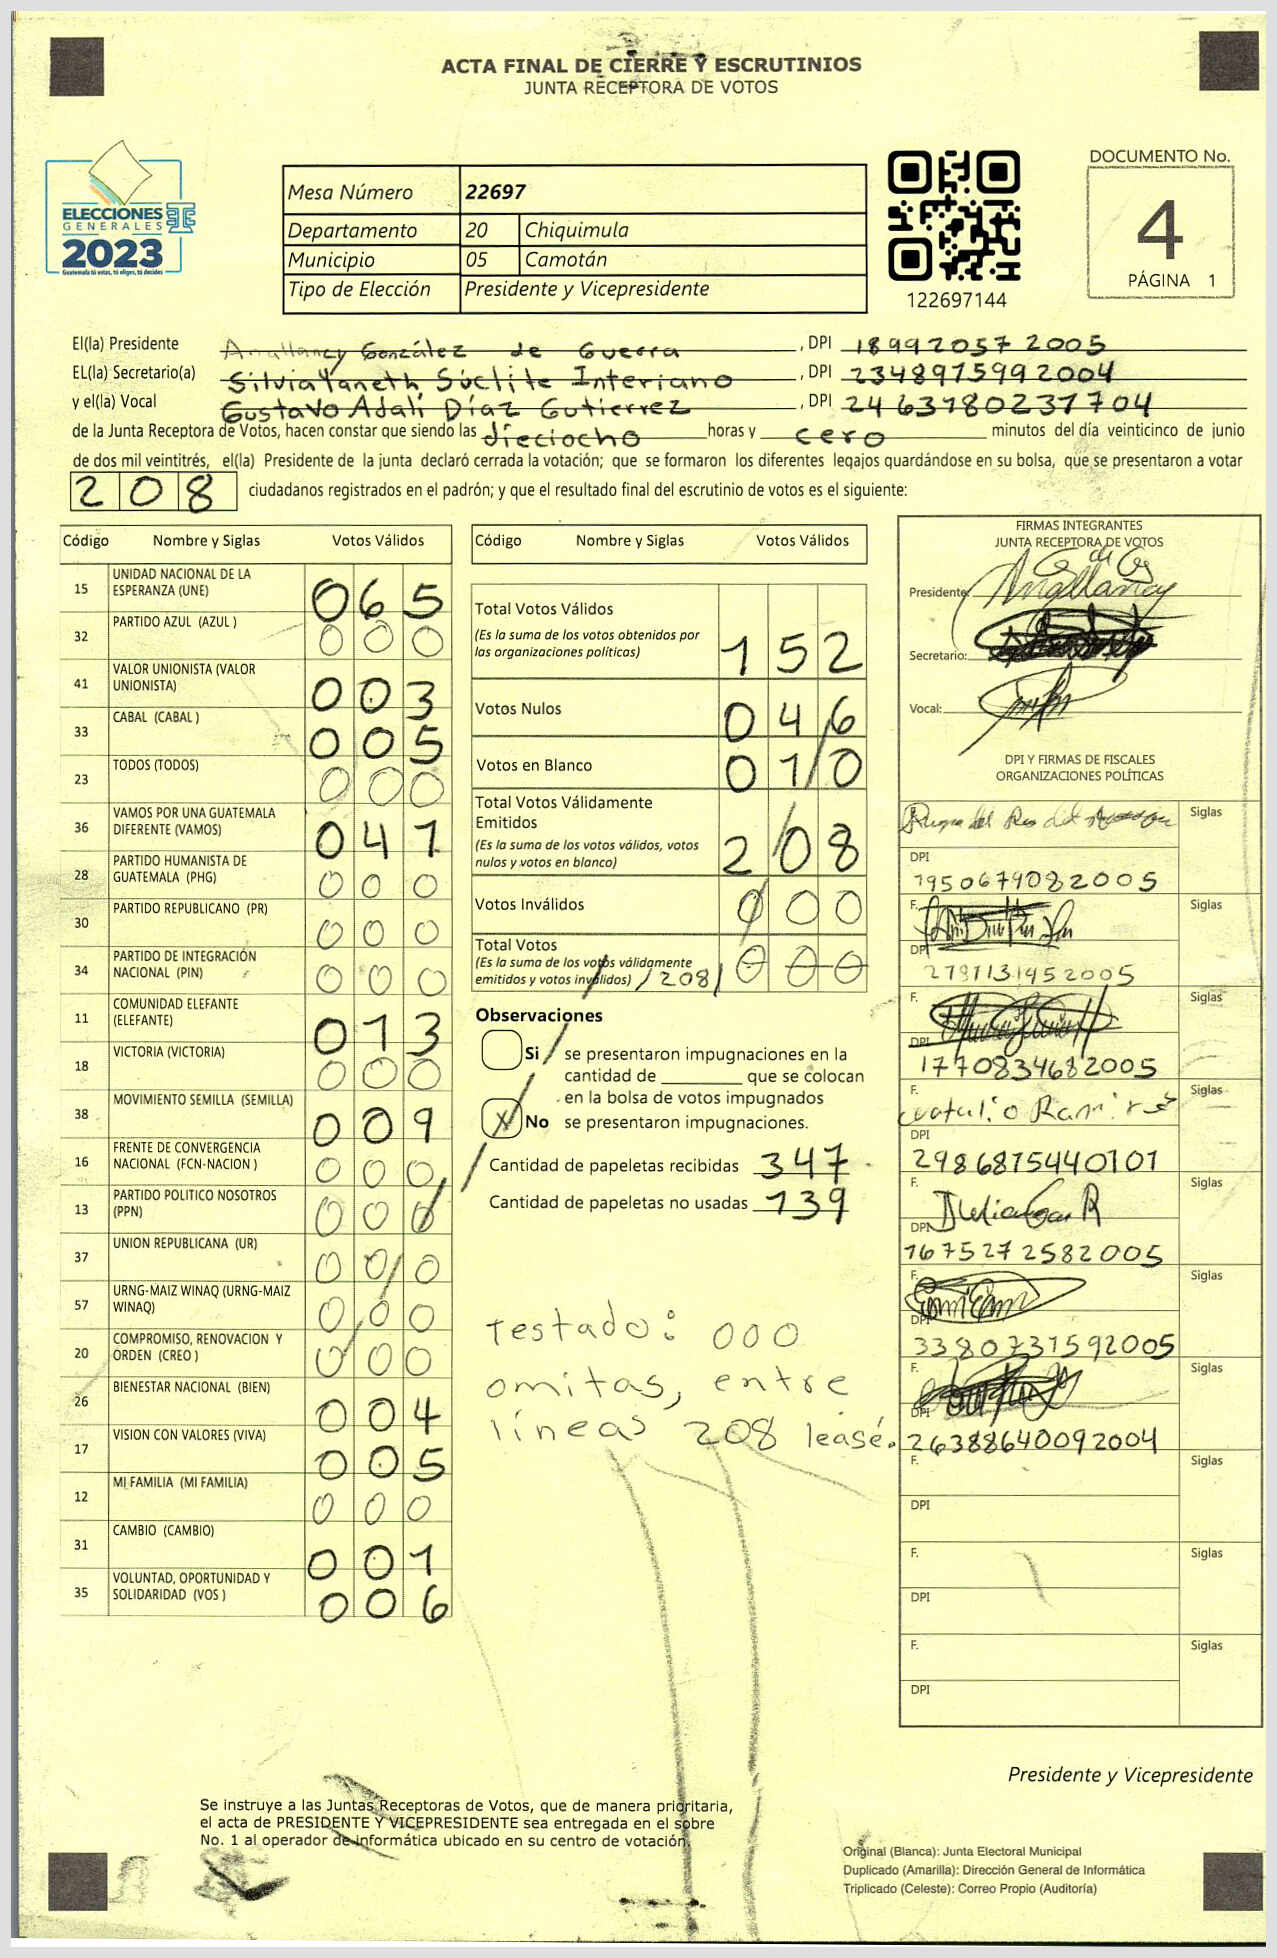 ACTA FINAL DE CIERRE Y ESCRUTINIOS
JUNTA RECEPTORA DE VOTOS
ELECCIONES
GENERALES
2023
Guatemala tú votas, tú eliges, tú decides
Mesa Número 22697
Departamento 20 Chiquimula
Municipio 05 Camotán
Tipo de Elección Presidente y Vicepresidente
122697144
DOCUMENTO No.
4
PÁGINA 1
El(la) Presidente Anallancy González de Guerra , DPI 18992057 2005
EL(la) Secretario(a) Silvia Yaneth Súclite Interiano , DPI 2348975992004
y el(la) Vocal Gustavo Adalí Díaz Gutierrez , DPI 2463780237704
de la Junta Receptora de Votos, hacen constar que siendo las dieciocho horas y cero minutos del día veinticinco de junio
de dos mil veintitrés, el(la) Presidente de la junta declaró cerrada la votación; que se formaron los diferentes legajos quardándose en su bolsa, que se presentaron a votar
208 ciudadanos registrados en el padrón; y que el resultado final del escrutinio de votos es el siguiente:
Código Nombre y Siglas Votos Válidos
15 UNIDAD NACIONAL DE LA ESPERANZA (UNE) 065
32 PARTIDO AZUL (AZUL ) 000
41 VALOR UNIONISTA (VALOR UNIONISTA) 003
33 CABAL (CABAL ) 005
23 TODOS (TODOS) 000
36 VAMOS POR UNA GUATEMALA DIFERENTE (VAMOS) 041
28 PARTIDO HUMANISTA DE GUATEMALA (PHG) 000
30 PARTIDO REPUBLICANO (PR) 000
34 PARTIDO DE INTEGRACIÓN NACIONAL (PIN) 000
11 COMUNIDAD ELEFANTE (ELEFANTE) 013
18 VICTORIA (VICTORIA) 000
38 MOVIMIENTO SEMILLA (SEMILLA) 009
16 FRENTE DE CONVERGENCIA NACIONAL (FCN-NACION ) 000
13 PARTIDO POLITICO NOSOTROS (PPN) 000
37 UNION REPUBLICANA (UR) 000
57 URNG-MAIZ WINAQ (URNG-MAIZ WINAQ) 000
20 COMPROMISO, RENOVACION Y ORDEN (CREO ) 000
26 BIENESTAR NACIONAL (BIEN) 004
17 VISION CON VALORES (VIVA) 005
12 MI FAMILIA (MI FAMILIA) 000
31 CAMBIO (CAMBIO) 001
35 VOLUNTAD, OPORTUNIDAD Y SOLIDARIDAD (VOS ) 006
Código Nombre y Siglas Votos Válidos
Total Votos Válidos
(Es la suma de los votos obtenidos por
las organizaciones políticas) 152
Votos Nulos 046
Votos en Blanco 010
Total Votos Válidamente
Emitidos
(Es la suma de los votos válidos, votos
nulos y votos en blanco) 208
Votos Inválidos 000
Total Votos
(Es la suma de los votos válidamente
emitidos y votos inválidos) /208/ 000
Observaciones
Si se presentaron impugnaciones en la
cantidad de ________ que se colocan
en la bolsa de votos impugnados
X No se presentaron impugnaciones.
Cantidad de papeletas recibidas 347
Cantidad de papeletas no usadas 139
Testado: 000
omitas, entre
líneas 208 leasé.
FIRMAS INTEGRANTES
JUNTA RECEPTORA DE VOTOS
Presidente:
Secretario:
Vocal:
DPI Y FIRMAS DE FISCALES
ORGANIZACIONES POLÍTICAS
Siglas
DPI
1950679082005
F. Siglas
DPI
2791131952005
F. Siglas
DPI
1770834682005
F. Siglas
Ramirez
DPI
2986815440101
F. Siglas
DPI
1675272582005
F. Siglas
DPI
3380731592005
F. Siglas
DPI
26388640092004
F. Siglas
DPI
F. Siglas
DPI
F. Siglas
DPI
Presidente y Vicepresidente
Se instruye a las Juntas Receptoras de Votos, que de manera prioritaria,
el acta de PRESIDENTE Y VICEPRESIDENTE sea entregada en el sobre
No. 1 al operador de informática ubicado en su centro de votación.
Original (Blanca): Junta Electoral Municipal
Duplicado (Amarilla): Dirección General de Informática
Triplicado (Celeste): Correo Propio (Auditoría)